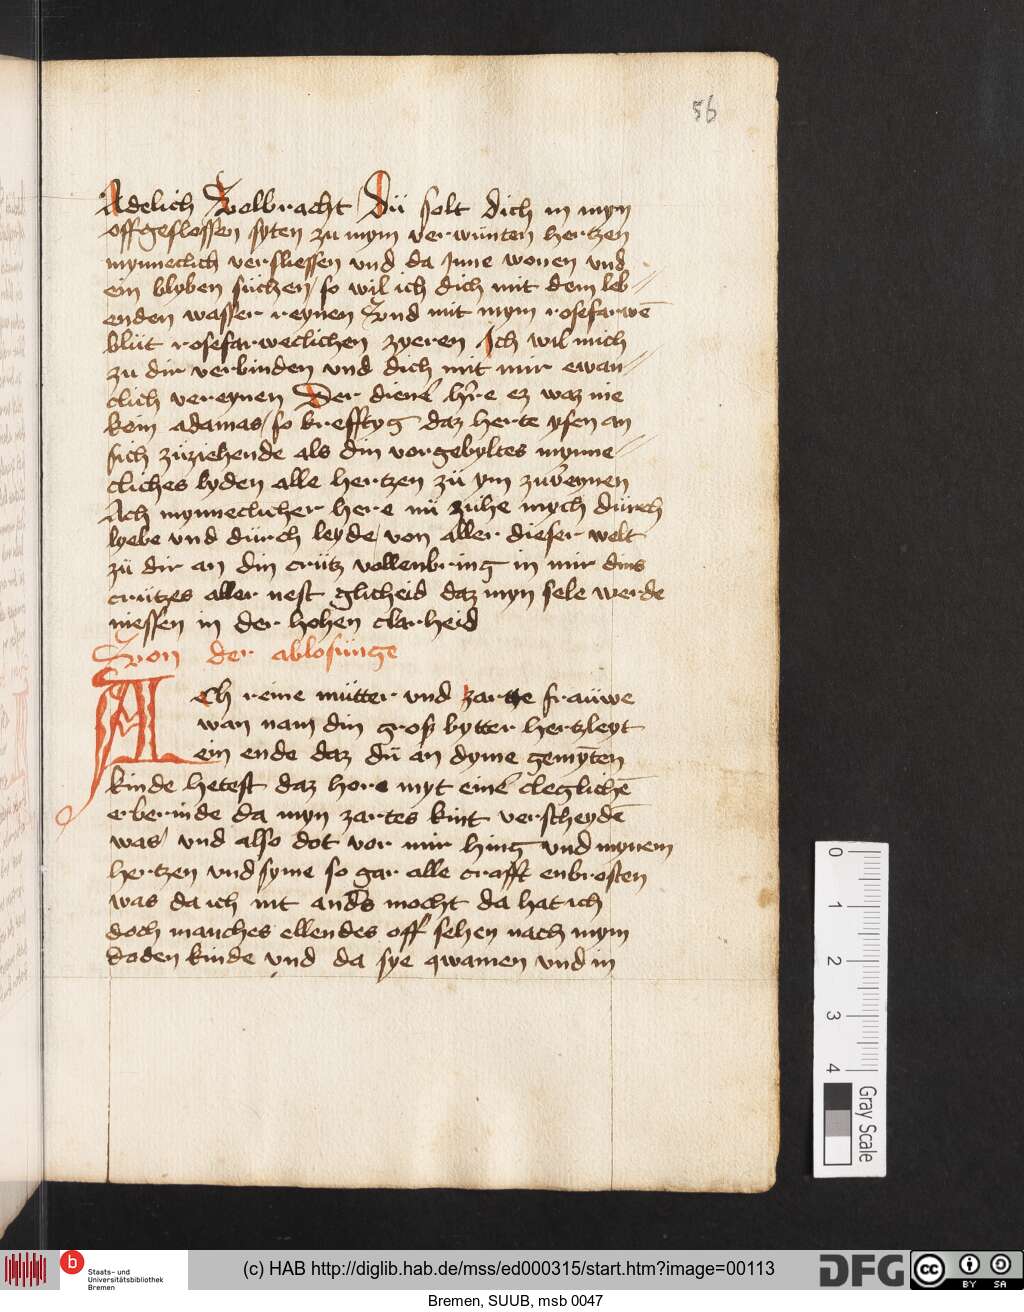 56
Adelich volbracht / Dü solt dich in myn
offgeslossen syten zu mym verwünten hertzen
mynneclich versliessen vnd da jnne wonen vnd
ein blyben süchen / so wil ich dich mit dem leb//
enden wasser reynen Vnd mit mym rosefarwē
blüt rosefarweclichen zyeren Ich wil mich
zu dir verbinden vnd dich mit mir ewan//
clich vereynen Der diener h're ez waz nie
kein adamas / so krefftyg daz herte ysen an
sich züziehende als din vorgebyltes mynne//
cliches lyden alle hertzen zü ym zuv'eynen
Ach mynneclicher here nü zühe mych dürch
lyebe vnd dürch leyde / von aller dieser welt
zü dir an din crütz vollenbring in mir dins
crützes aller nest glicheid daz myn sele werde
niessen in der hohen clarheid
Von der ablosünge
Ach reine mütter vnd zarte fraüwe
wan nam din groß bytter hertzleyt
ein ende daz dü an dyme gemȳten
kinde hetest daz hore myt einer cleglichē
erbermde da myn zartes kint verscheydē
was / vnd also dot vor mir hing vnd mynem
hertzen vnd syme so gar alle crafft enbrosten
was da ich nit and's mocht da hat ich
doch manches ellendes off sehen nach mym
doden kinde vnd da sye qwamen vnd in
0
1
2
3
4
Gray Scale
b
Staats- und
Universitätsbibliothek
Bremen
(c) HAB http://diglib.hab.de/mss/ed000315/start.htm?image=00113
DFG
cc
BY SA
Bremen, SUUB, msb 0047